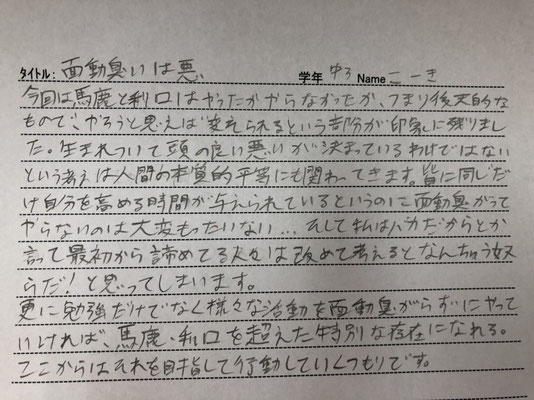 タイトル: 面動臭いは悪 学年 中3 Name ニーき
今回は馬鹿と利口はやったかやらなかったか、つまり後天的な
もので、やろうと思えば変えられるという部分が印象に残りまし
た。生まれついて頭の良い悪いが決まっているわけではない
という考えは人間の本質的平等にも関わってきます。皆に同じだ
け自分を高める時間が与えられているというのに面動臭がって
やらないのは大変もったいない…そして私はバカだからとか
言って最初から諦めてる人々は改めて考えるとなんちゅう奴
らだ!と思ってしまいます。
更に勉強だけでなく様々な活動を面動臭がらずにやって
いければ、馬鹿・利口を超えた特別な存在になれる。
ここからはそれを目指して行動していくつもりです。